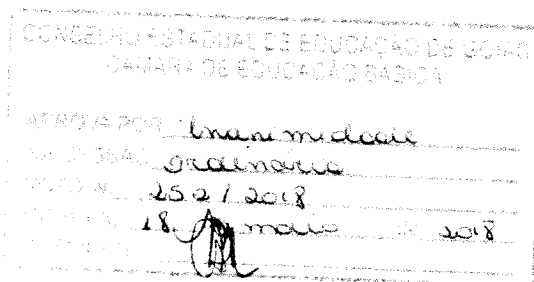 CONSELHO ESTADUAL DE EDUCAÇÃO DE GOIÁS
CÂMARA DE EDUCAÇÃO BÁSICA
APROVA POR Unanimidade
ordinária
252 / 2018
18 maio 2018